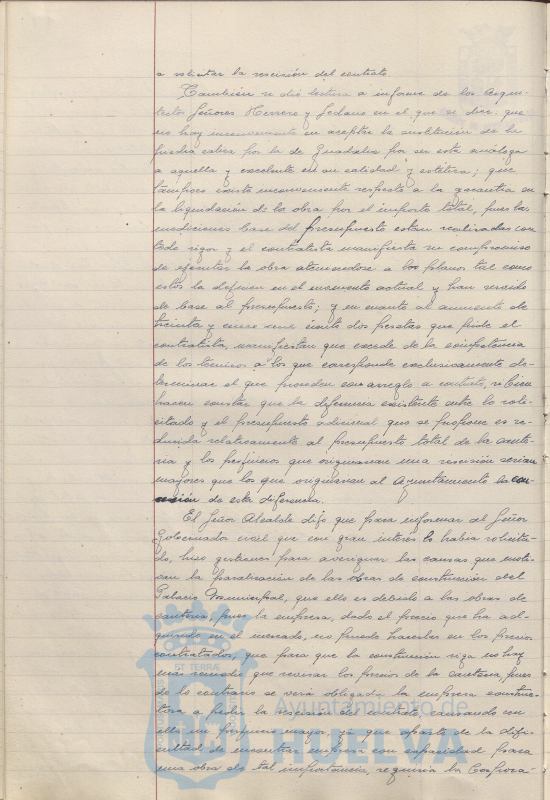 a solicitar la rescisión del contrato.
También se dió lectura a informe de los Arqui-
tectos Señores Herrero y Sedano en el que se dice: que
no hay inconveniente en aceptar la sustitución de la
piedra caliza por la de Guadalix por ser esta análoga
a aquella y excelente en su calidad y estética; que
tampoco existe inconveniente respecto a la garantía en
la liquidación de la obra por el importe total, pues las
mediciones base del presupuesto están realizadas con
todo rigor y el contratista manifiesta su compromiso
de ejecutar la obra ateniendose a los planos tal como
estos la definen en el momento actual y han servido
de base al presupuesto; y en cuanto al aumento de
treinta y nueve mil ciento dos pesetas que pide el
contratista, manifiestan que excede de la competencia
de los técnicos a los que corresponde exclusivamente de-
terminar el que proceda con arreglo a contrato, si bien
hacen constar que la diferencia existente entre lo soli-
citado y el presupuesto adicional que se propone es re-
ducida relativamente al presupuesto total de la cante-
ria y los perjuicios que originarian una rescisión serian
mayores que los que originarian al Ayuntamiento la con-
cesión de esta diferencia.
El Señor Alcalde dijo que para informar al Señor
Gobernador civil que con gran interés lo habia solicita-
do, hizo gestiones para averiguar las causas que moti-
van la paralización de las obras de construcción del
Palacio Municipal, que ello es debido a las obras de
cantería, pues la empresa, dado el precio que ha ad-
quirido en el mercado, no puede hacerlas en los precios
contratados, que para que la construcción siga no hay
mas remedio que revisar los precios de la cantería, pues
de lo contrario se verá obligada la empresa construc-
tora a pedir la rescisión del contrato, causando con
ello un perjuicio mayor, ya que aparte de la difi-
cultad de encontrar empresa con capacidad para
una obra de tal importancia, requiria la Corpora-
ET TERRAE
Ayuntamiento de
HUELVA